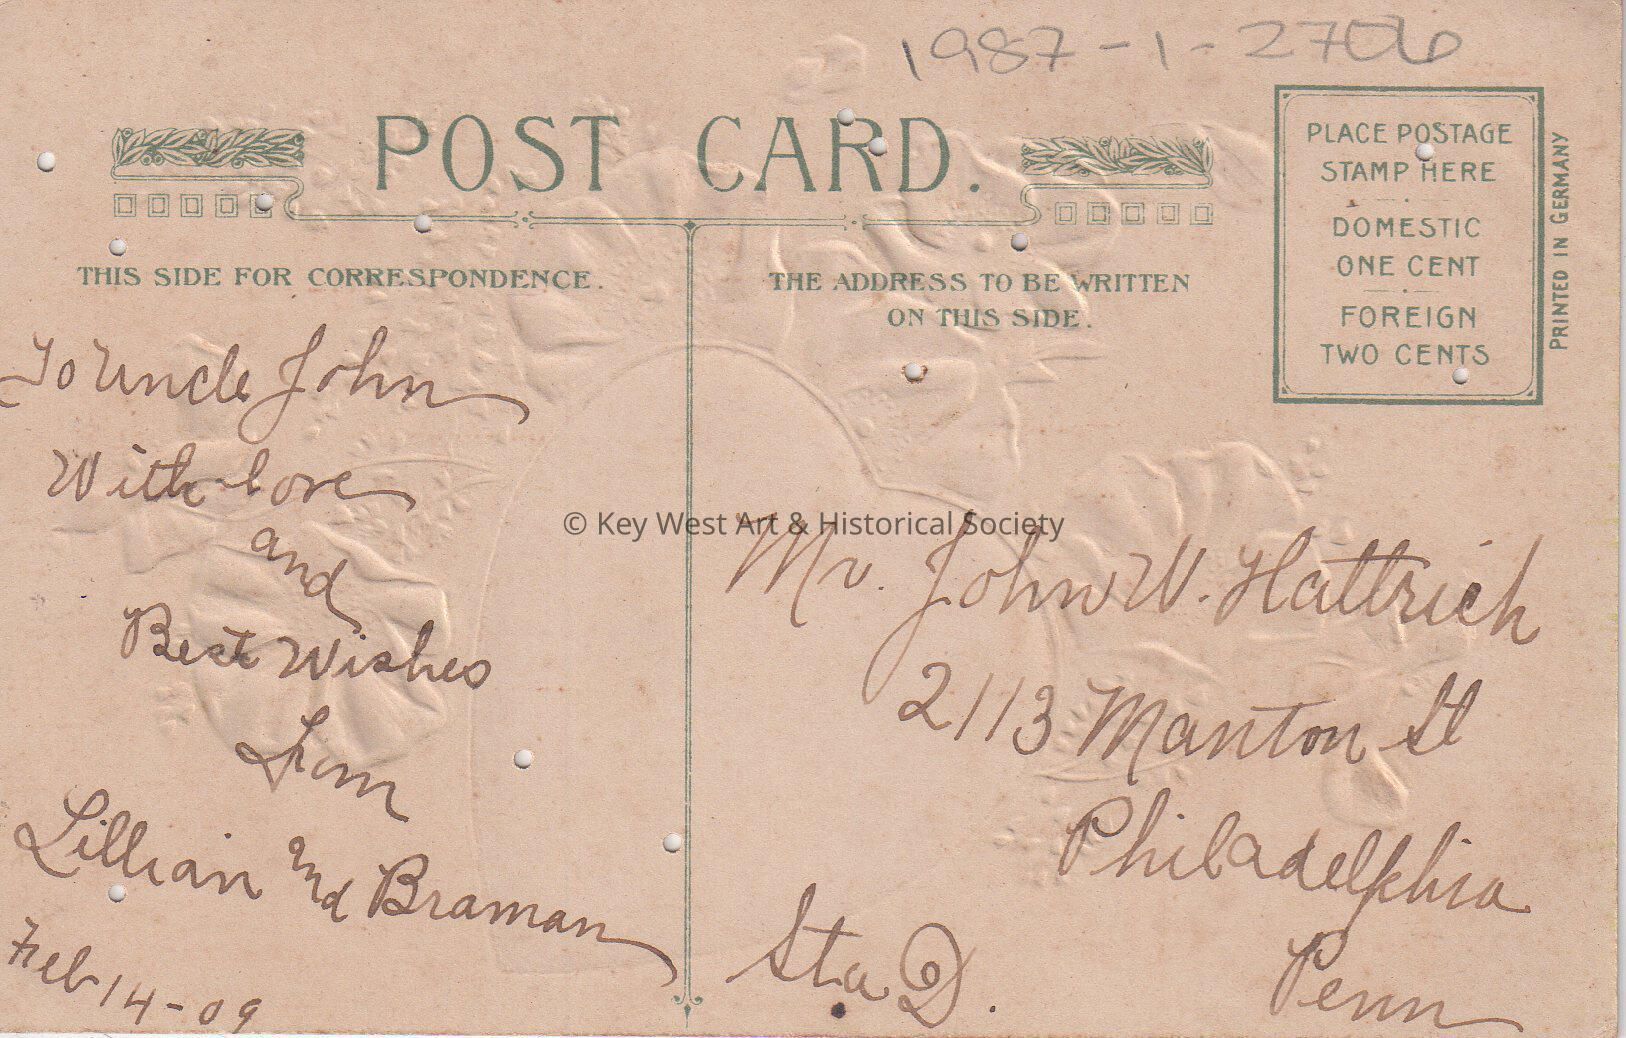 1987-1-2706
POST CARD.
THIS SIDE FOR CORRESPONDENCE.
THE ADDRESS TO BE WRITTEN
ON THIS SIDE.
PLACE POSTAGE
STAMP HERE
DOMESTIC
ONE CENT
FOREIGN
TWO CENTS
PRINTED IN GERMANY
To Uncle John
With love
and
Best Wishes
From
Lillian and Braman
Feb 14-09
© Key West Art & Historical Society
Mr. John W. Hattrich
2113 Manton St
Philadelphia
Penn
Sta D.